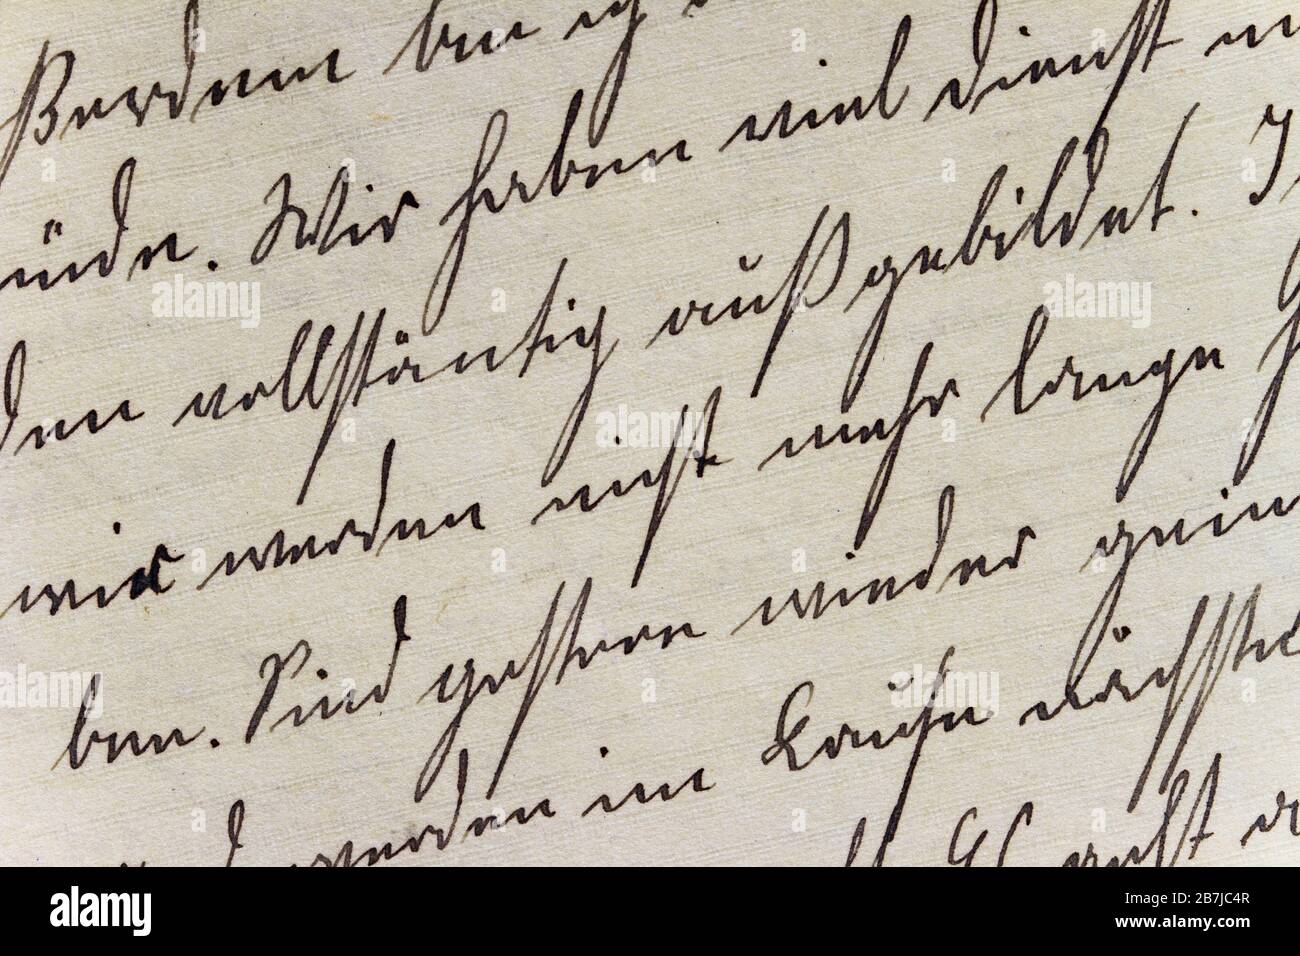 ßerdem bin ich
müde. Wir haben viel Dienst
den vollständig außgebildet.
wir werden nicht mehr lange
ben. Sind gestern wieder geim
werden im Laufe nächste
Es geht
alamy
Image ID: 2B7JC4R
www.alamy.com